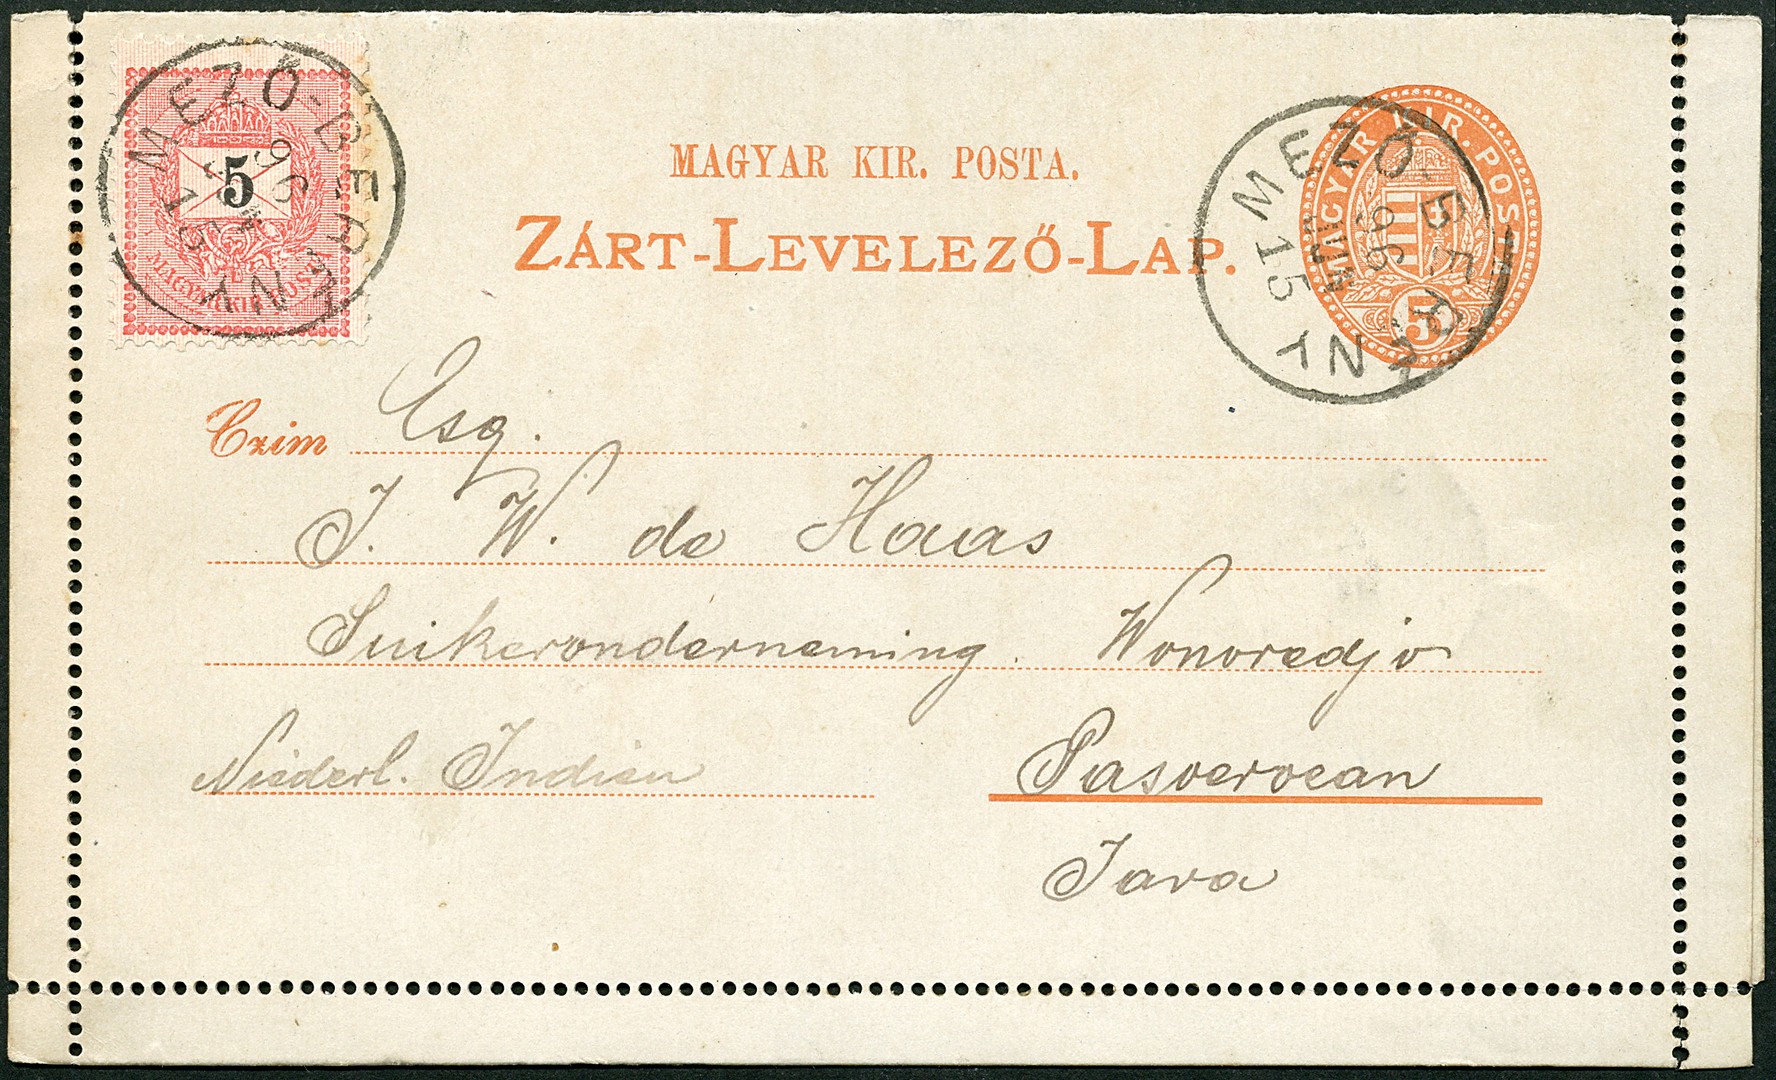 MEZŐ-BERÉNY
96
15
5
MAGYAR KIR. POSTA
MAGYAR KIR. POSTA.
ZÁRT-LEVELEZŐ-LAP.
MEZŐ-BERÉNY
96
JUN
15
MAGYAR KIR. POSTA
5
Czim Esq.
J. W. de Haas
Suikeronderneming Wonoredjo
Niederl. Indien Pasoeroean
Java